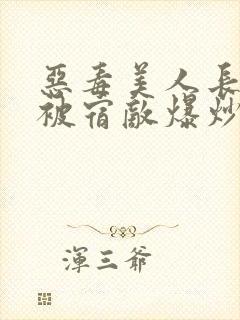 惡毒美人長
被宿敵爆炒
渾三爺